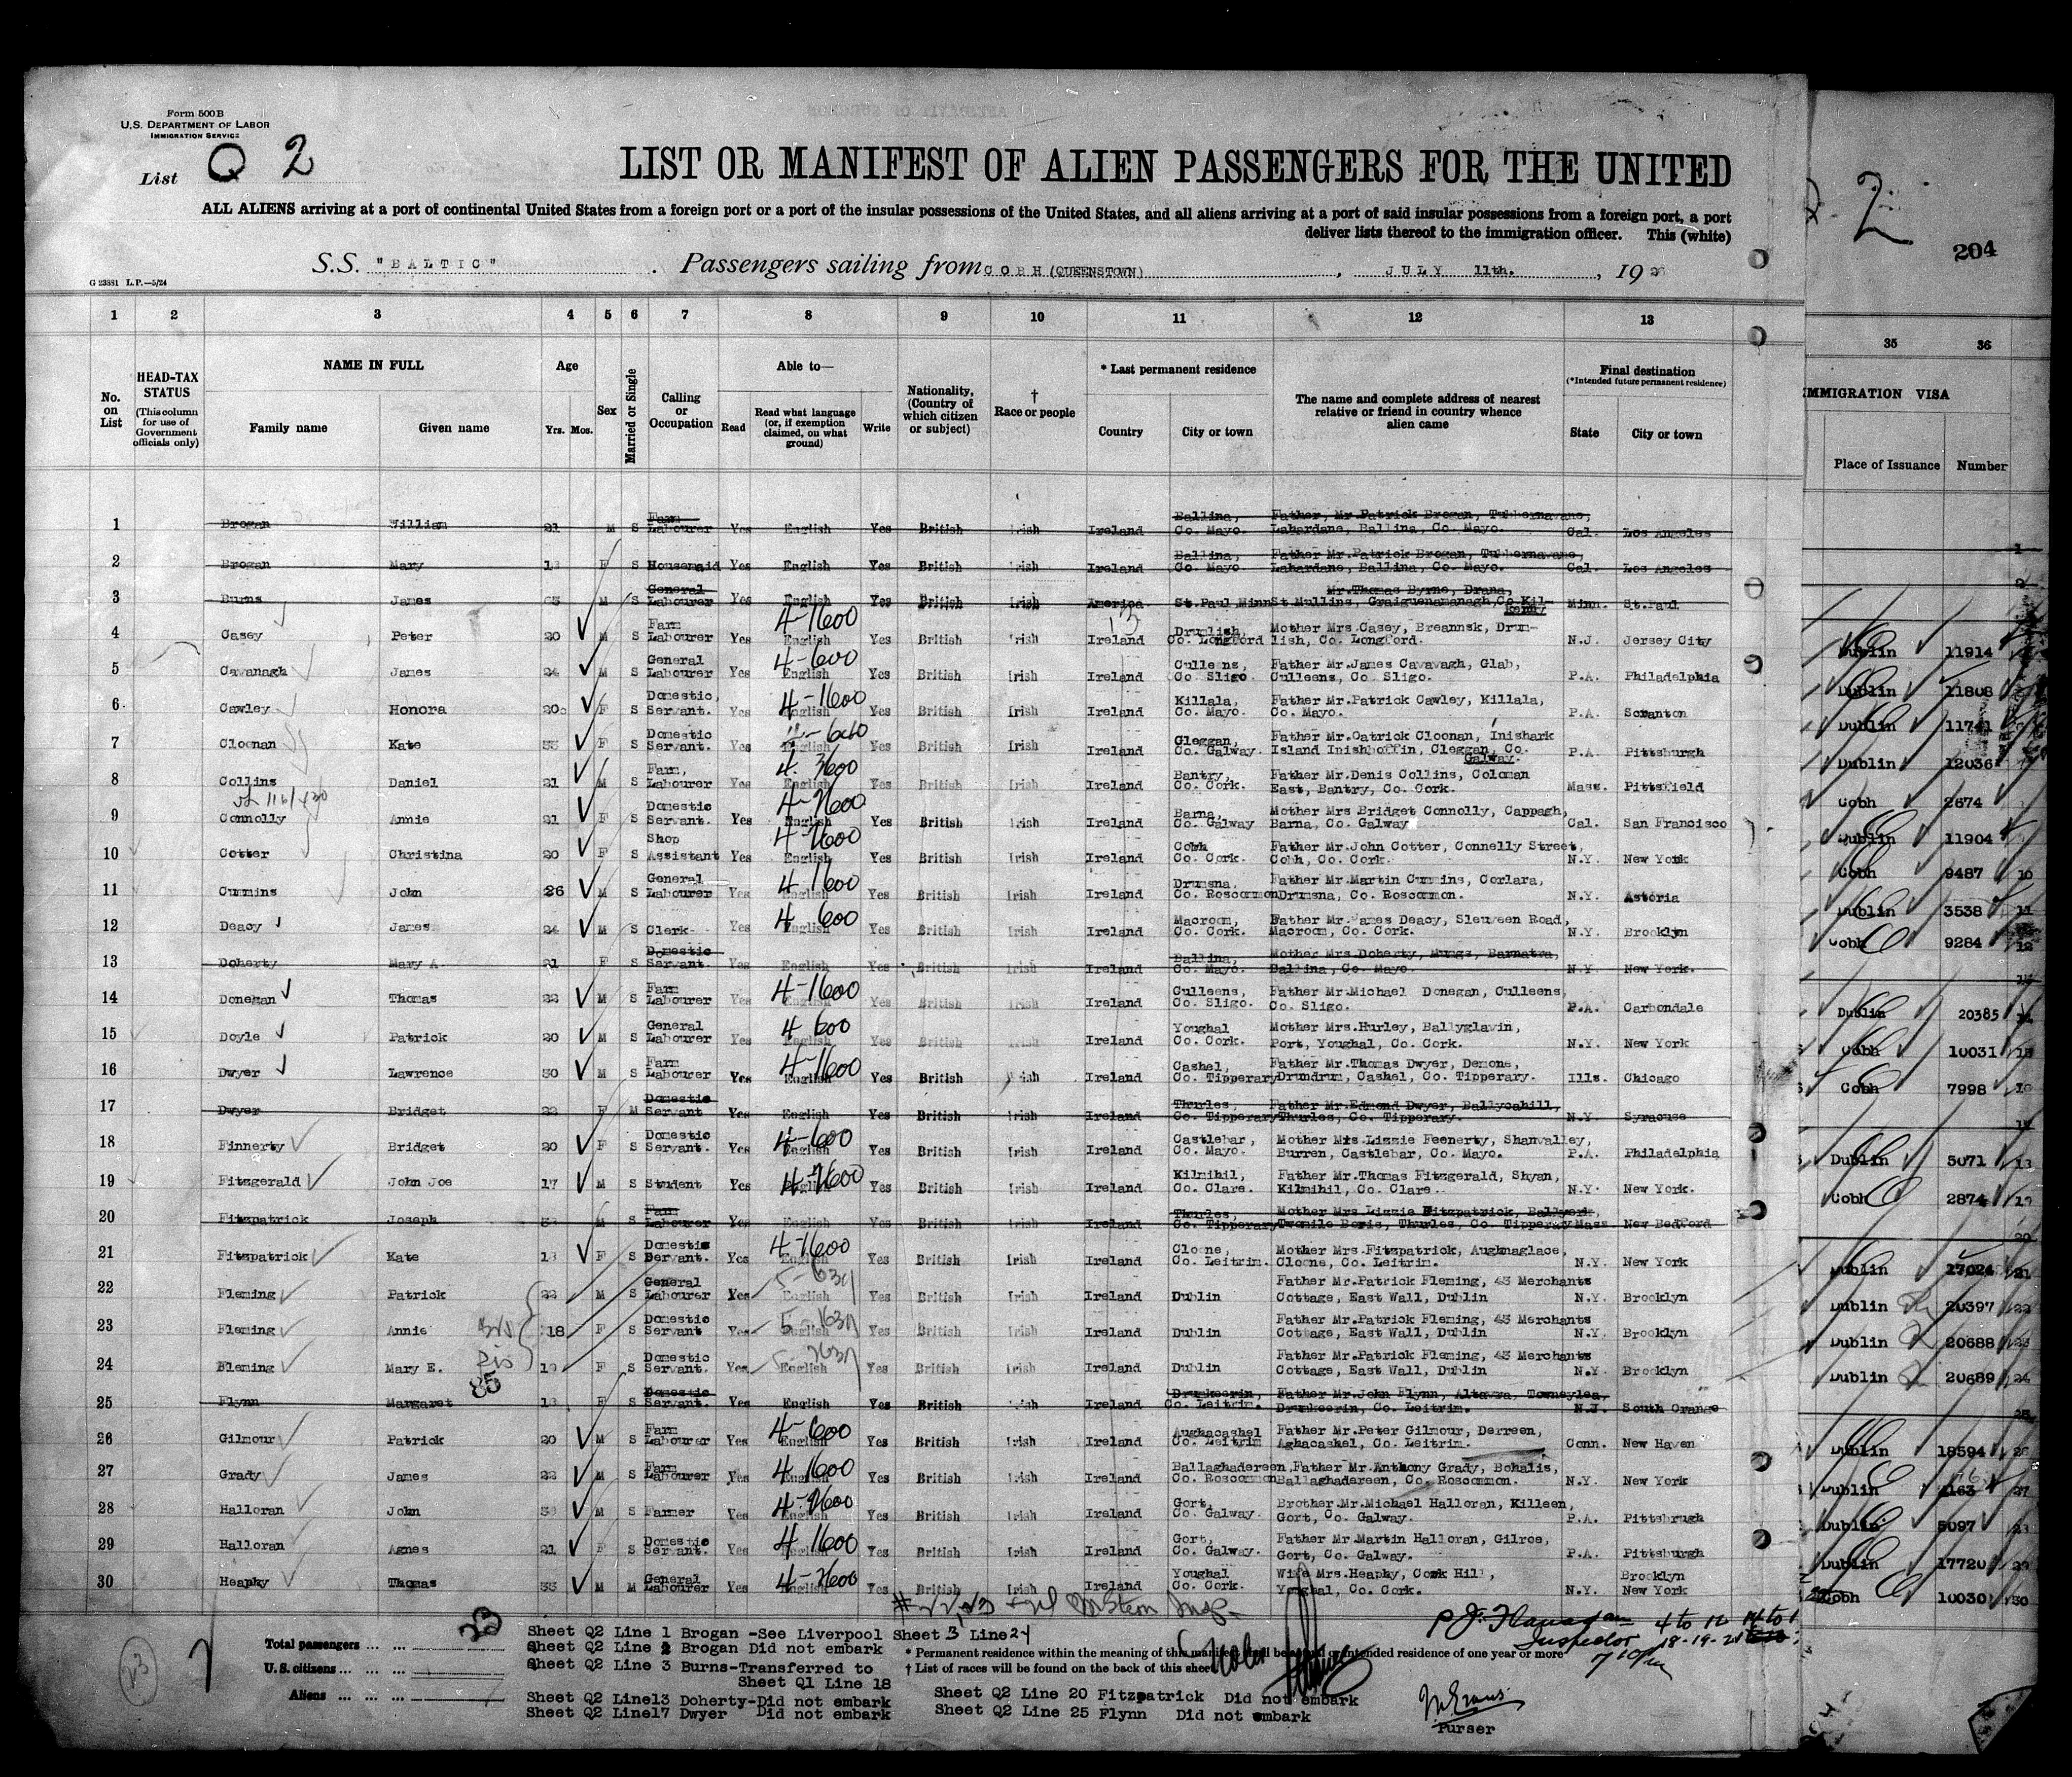 Form 500 B
U.S. DEPARTMENT OF LABOR
IMMIGRATION SERVICE
List Q 2
LIST OR MANIFEST OF ALIEN PASSENGERS FOR THE UNITED
ALL ALIENS arriving at a port of continental United States from a foreign port or a port of the insular possessions of the United States, and all aliens arriving at a port of said insular possessions from a foreign port, a port
deliver lists thereof to the immigration officer. This (white)
S.S. "BALTIC" . Passengers sailing from COBH (QUEENSTOWN) , JULY 11th. , 19
G 23881 L.P.—5/24
2
204
1 2 3 4 5 6 7 8 9 10 11 12 13 35 36
No. on List
HEAD-TAX STATUS (This column for use of Government officials only)
NAME IN FULL
Family name Given name
Age
Yrs. Mos.
Sex
Married or Single
Calling or Occupation
Able to—
Read
Read what language (or, if exemption claimed, on what ground)
Write
Nationality, (Country of which citizen or subject)
† Race or people
* Last permanent residence
Country City or town
The name and complete address of nearest relative or friend in country whence alien came
Final destination
(*Intended future permanent residence)
State City or town
IMMIGRATION VISA
Place of Issuance Number
1 Brogan William 21 M S Farm Labourer Yes English Yes British Irish Ireland Ballina, Co. Mayo Father, Mr. Patrick Brogan, Lahardane, Ballina, Co. Mayo. Cal. Los Angeles
2 Brogan Mary F S Housemaid Yes English Yes British Irish Ireland Ballina, Co. Mayo Father Mr. Patrick Brogan, Lahardane, Ballina, Co. Mayo. Cal. Los Angeles
3 Burns James M S General Labourer Yes English Yes British Irish America. St. Paul Minn Mr. Thomas Byrne, Drana, St Mullins, Graiguenamanagh, Co Kilkenny Minn. St. Paul
4 Casey Peter 20 M S Farm Labourer Yes 4-1600 English Yes British Irish Ireland Drumlish, Co. Longford Mother Mrs. Casey, Breannsk, Drumlish, Co. Longford. N.J. Jersey City Dublin 11914
5 Cavanagh James 24 M S General Labourer Yes 4-600 English Yes British Irish Ireland Culleens, Co Sligo. Father Mr. James Cavavagh, Glab, Culleens, Co. Sligo. P.A. Philadelphia Dublin 11808
6 Cawley Honora 20 F S Domestic Servant. Yes 4-1600 English Yes British Irish Ireland Killala, Co. Mayo. Father Mr. Patrick Cawley, Killala, Co. Mayo. P.A. Scranton Dublin 11741
7 Cloonan Kate F S Domestic Servant. Yes English Yes British Irish Ireland Cleggan, Co. Galway. Father Mr. Oatrick Cloonan, Inishark Island Inishboffin, Cleggan, Co. Galway. P.A. Pittsburgh Dublin 12036
8 Collins Daniel 21 M S Farm, Labourer Yes 4. 3600 English Yes British Irish Ireland Bantry, Co. Cork. Father Mr. Denis Collins, Coloman East, Bantry, Co. Cork. Mass. Pittsfield Cobh 2874
9 Connolly Annie 21 F S Domestic Servant. Yes English Yes British Irish Ireland Barna, Co. Galway Mother Mrs Bridget Connolly, Cappagh, Barna, Co. Galway Cal. San Francisco Dublin 11904
10 Cotter Christina 20 F S Shop Assistant Yes English Yes British Irish Ireland Cobh Co. Cork. Father Mr. John Cotter, Connelly Street, Cobh, Co. Cork. N.Y. New York Cobh 9487
11 Cummins John 26 M S General Labourer Yes 4-1600 English Yes British Irish Ireland Drumsna, Co. Roscommon Father Mr. Martin Cummins, Corlara, Drumsna, Co. Roscommon. N.Y. Astoria Dublin 3538
12 Deacy James 24 M S Clerk Yes 4 600 English Yes British Irish Ireland Macroom, Co. Cork. Father Mr. James Deacy, Sleuveen Road, Macroom, Co. Cork. N.Y. Brooklyn Cobh 9284
13 Doherty Mary A 21 F S Domestic Servant. Yes English Yes British Irish Ireland Ballina, Co. Mayo. Mother Mrs. Doherty, Barnatra, Ballina, Co. Mayo. N.Y. New York.
14 Donegan Thomas 22 M S Farm Labourer Yes 4-1600 English Yes British Irish Ireland Culleens, Co. Sligo. Father Mr. Michael Donegan, Culleens, Co. Sligo. P.A. Carbondale Dublin 20385
15 Doyle Patrick 20 M S General Labourer Yes 4 600 English Yes British Irish Ireland Youghal Co. Cork. Mother Mrs. Hurley, Ballyglavin, Port, Youghal, Co. Cork. N.Y. New York Cobh 10031
16 Dwyer Lawrence 30 M S Farm Labourer Yes 4-1600 English Yes British Irish Ireland Cashel, Co. Tipperary Father Mr. Thomas Dwyer, Demone, Drundrum, Cashel, Co. Tipperary. Ills. Chicago Cobh 7998
17 Dwyer Bridget 22 F M Domestic Servant Yes English Yes British Irish Ireland Thurles, Co. Tipperary Father Mr. Edmond Dwyer, Ballycahill, Thurles, Co. Tipperary. N.Y. Syracuse
18 Finnerty Bridget 20 F S Domestic Servant. Yes 4-600 English Yes British Irish Ireland Castlebar, Co. Mayo. Mother Mrs Lizzie Feenerty, Shanvalley, Burren, Castlebar, Co. Mayo. P.A. Philadelphia Dublin 5071
19 Fitzgerald John Joe 17 M S Student Yes English Yes British Irish Ireland Kilmihil, Co. Clare. Father Mr. Thomas Fitzgerald, Shyan, Kilmihil, Co. Clare. N.Y. New York. Cobh 2874
20 Fitzpatrick Joseph M S Farm Labourer Yes English Yes British Irish Ireland Thurles, Co. Tipperary Mother Mrs Lizzie Fitzpatrick, Twomile Boris, Thurles, Co. Tipperary Mass. New Bedford
21 Fitzpatrick Kate F S Domestic Servant. Yes 4-1600 English Yes British Irish Ireland Cloone, Co. Leitrim. Mother Mrs. Fitzpatrick, Aughnaglace, Cloone, Co. Leitrim. N.Y. New York Dublin 17024
22 Fleming Patrick 22 M S General Labourer Yes English Yes British Irish Ireland Dublin Father Mr. Patrick Fleming, 43 Merchants Cottage, East Wall, Dublin N.Y. Brooklyn Dublin 20397
23 Fleming Annie 18 F S Domestic Servant Yes English Yes British Irish Ireland Dublin Father Mr. Patrick Fleming, 43 Merchants Cottage, East Wall, Dublin N.Y. Brooklyn Dublin 20688
24 Fleming Mary E. 19 F S Domestic Servant Yes English Yes British Irish Ireland Dublin Father Mr. Patrick Fleming, 43 Merchants Cottage, East Wall, Dublin N.Y. Brooklyn Dublin 20689
85
25 Flynn Margaret F S Domestic Servant. Yes English Yes British Irish Ireland Drumkeerin, Co. Leitrim. Father Mr. John Flynn, Altavra, Drumkeerin, Co. Leitrim. N.J. South Orange
26 Gilmour Patrick 20 M S Farm Labourer Yes 4-600 English Yes British Irish Ireland Aughacashel Co. Leitrim Father Mr. Peter Gilmour, Derreen, Aghacashel, Co. Leitrim. Conn. New Haven Dublin 18594
27 Grady James 22 M S Farm Labourer Yes 4 1600 English Yes British Irish Ireland Ballaghadereen, Co. Roscommon Father Mr. Anthony Grady, Bohalis, Ballaghadereen, Co. Roscommon. N.Y. New York Dublin
28 Halloran John M S Farmer Yes English Yes British Irish Ireland Gort, Co. Galway. Brother Mr. Michael Halloran, Killeen, Gort, Co. Galway. P.A. Pittsbrugh Dublin 5097
29 Halloran Agnes 21 F S Domestic Servant. Yes 4 1600 English Yes British Irish Ireland Gort, Co. Galway. Father Mr. Martin Halloran, Gilroe, Gort, Co. Galway. P.A. Pittsburgh Dublin 17720
30 Heaphy Thomas 33 M M General Labourer Yes English Yes British Irish Ireland Youghal Co. Cork. Wife Mrs. Heaphy, Cork Hill, Youghal, Co. Cork. N.Y. Brooklyn New York Cobh 10030
Total passengers ... ... 23
U.S. citizens ... ...
Aliens ... ... ...
23
Sheet Q2 Line 1 Brogan -See Liverpool Sheet 3 Line 24
Sheet Q2 Line 2 Brogan Did not embark
Sheet Q2 Line 3 Burns-Transferred to
Sheet Q1 Line 18
Sheet Q2 Line13 Doherty-Did not embark
Sheet Q2 Line17 Dwyer Did not embark
* Permanent residence within the meaning of this manifest shall be actual or intended residence of one year or more
† List of races will be found on the back of this sheet
Sheet Q2 Line 20 Fitzpatrick Did not embark
Sheet Q2 Line 25 Flynn Did not embark
P J. Flanagan
Inspector
Purser